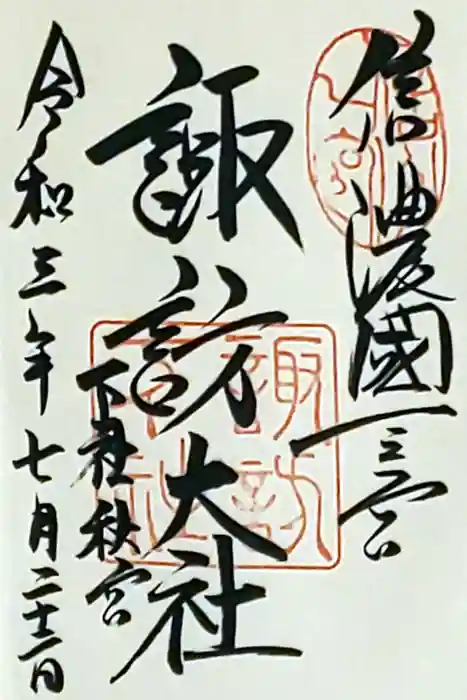 信濃國一之宮
諏訪大社
下社秋宮
令和三年七月二十二日
諏訪